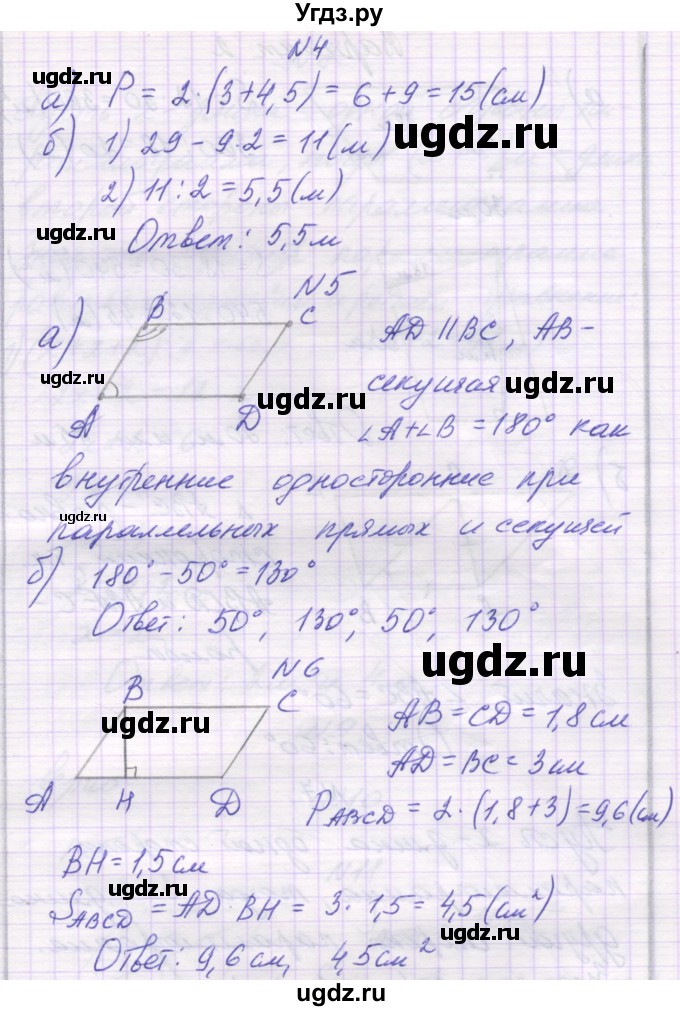 Угдз.ру
N4
а) P = 2·(3+4,5) = 6+9 = 15(см)
б) 1) 29 - 9·2 = 11(м)
ugdz.ru
2) 11:2 = 5,5(м)
ugdz.ru
Ответ: 5,5м
N5
а)
B C
A D
AD || BC, AB-
ugdz.ru
секущая ugdz.ru
ugdz.ru
∠A+∠B = 180° как
внутренние односторонние при
ugdz.ru
параллельных прямых и секущей
б) 180° - 50° = 130°
Ответ: 50°, 130°, 50°, 130°
ugdz.ru
N6
B C
A H D
ugdz.ru
AB = CD = 1,8см
AD = BC = 3см
P ABCD = 2·(1,8+3) = 9,6(см)
BH = 1,5см
ugdz.ru
S ABCD = AD·BH = 3·1,5 = 4,5(см²)
ugdz.ru
Ответ: 9,6см, 4,5см²
ugdz.ru